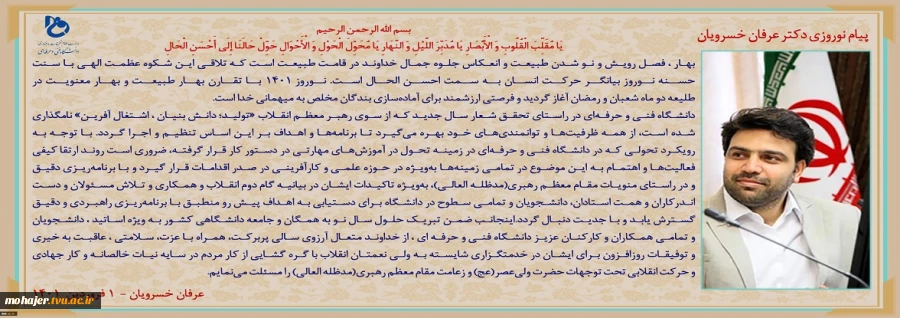 پیام نوروزی دکتر عرفان خسرویان
بسم الله الرحمن الرحیم
یَا مُقَلِّبَ الْقُلُوبِ وَ الْأَبْصَارِ یَا مُدَبِّرَ اللَّیْلِ وَ النَّهَارِ یَا مُحَوِّلَ الْحَوْلِ وَ الْأَحْوَالِ حَوِّلْ حَالَنَا إِلَى أَحْسَنِ الْحَالِ
بهار ، فصل رویش و نو شدن طبیعت و انعکاس جلوه جمال خداوند در قامت طبیعت است که تلاقی این شکوه عظمت الهی با سنت
حسنه نوروز بیانگر حرکت انسان به سمت احسن الحال است. نوروز ۱۴۰۱ با تقارن بهار طبیعت و بهار معنویت در
طلیعه دو ماه شعبان و رمضان آغاز گردید و فرصتی ارزشمند برای آماده‌سازی بندگان مخلص به میهمانی خدا است.
دانشگاه فنی و حرفه‌ای در راستای تحقق شعار سال جدید که از سوی رهبر معظم انقلاب «تولید؛ دانش بنیان ، اشتغال آفرین» نامگذاری
شده است، از همه ظرفیت‌ها و توانمندی‌های خود بهره می‌گیرد تا برنامه‌ها و اهداف بر این اساس تنظیم و اجرا گردد. با توجه به
رویکرد تحولی که در دانشگاه فنی و حرفه‌ای در زمینه تحول در آموزش‌های مهارتی در دستور کار قرار گرفته، ضروری است روند ارتقا کیفی
فعالیت‌ها و اهتمام به این موضوع در تمامی زمینه‌ها به‌ویژه در حوزه علمی و کارآفرینی در صدر اقدامات قرار گیرد و با برنامه‌ریزی دقیق
و در راستای منویات مقام معظم رهبری(مدظله العالی)، به‌ویژه تاکیدات ایشان در بیانیه گام دوم انقلاب و همکاری و تلاش مسئولان و دست
اندرکاران و همت استادان، دانشجویان و تمامی سطوح در دانشگاه برای دستیابی به اهداف پیش رو منطبق با برنامه‌ریزی راهبردی و دقیق
گسترش یابد و با جدیت دنبال گردد.اینجانب ضمن تبریک حلول سال نو به همگان و جامعه دانشگاهی کشور به ویژه اساتید ، دانشجویان
و تمامی همکاران و کارکنان عزیز دانشگاه فنی و حرفه ای ، از خداوند متعال آرزوی سالی پربرکت، همراه با عزت، سلامتی ، عاقبت به خیری
و توفیقات روزافزون برای ایشان در خدمتگزاری شایسته به ولی نعمتان انقلاب با گره گشایی از کار مردم در سایه نیات خالصانه و کار جهادی
و حرکت انقلابی تحت توجهات حضرت ولی‌عصر(عج) و زعامت مقام معظم رهبری(مدظله العالی) را مسئلت می‌نمایم.
عرفان خسرویان - ۱ فروردین ۱۴۰۱
mohajer.tvu.ac.ir